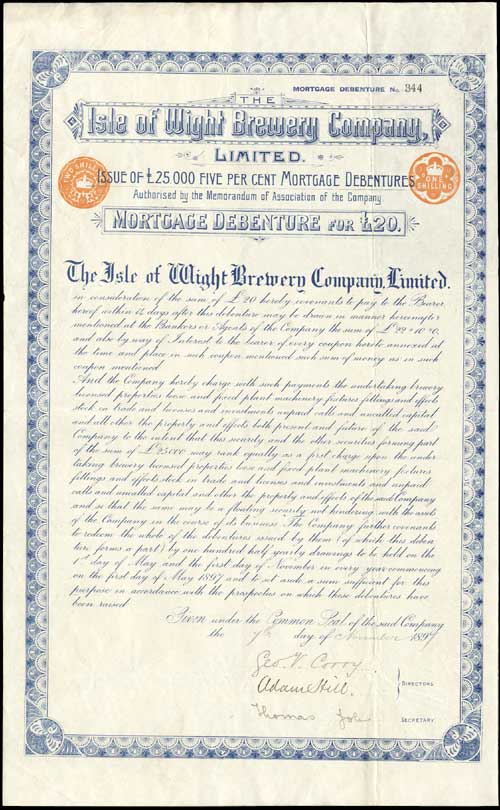 MORTGAGE DEBENTURE No. 344
THE
Isle of Wight Brewery Company,
LIMITED.
ISSUE OF £25000 FIVE PER CENT MORTGAGE DEBENTURES
Authorised by the Memorandum of Association of the Company
TWO SHILLINGS
ONE SHILLING
MORTGAGE DEBENTURE FOR £20.
The Isle of Wight Brewery Company, Limited.
in consideration of the sum of £20 hereby covenants to pay to the Bearer
hereof within 14 days after this debenture may be drawn in manner hereinafter
mentioned at the Bankers or Agents of the Company the sum of £22=10=0,
and also by way of Interest to the bearer of every coupon hereto annexed at
the time and place in such coupon mentioned such sum of money as in such
coupon mentioned
And the Company hereby charge with such payments the undertaking brewery
licensed properties loose and fixed plant machinery fixtures fittings and effects
stock in trade and licenses and investments unpaid calls and uncalled capital
and all other the property and effects both present and future of the said
Company to the intent that this security and the other securities forming part
of the sum of £25000 may rank equally as a first charge upon the under
taking brewery licensed properties loose and fixed plant machinery fixtures
fittings and effects stock in trade and licenses and investments and unpaid
calls and uncalled capital and other the property and effects of the said Company
and so that the same may be a floating security not hindering with the assets
of the Company in the course of its business. The Company further covenants
to redeem the whole of the debentures issued by them (of which this deben
ture forms a part) by one hundred half yearly drawings to be held on the
1st day of May and the first day of November in every year commencing
on the first day of May 1897 and to set aside a sum sufficient for this
purpose in accordance with the prospectus on which these debentures have
been raised
Given under the Common Seal of the said Company
the day of November 1897
Geo. F. Corry
Adam Hill.
DIRECTORS
Thomas
SECRETARY